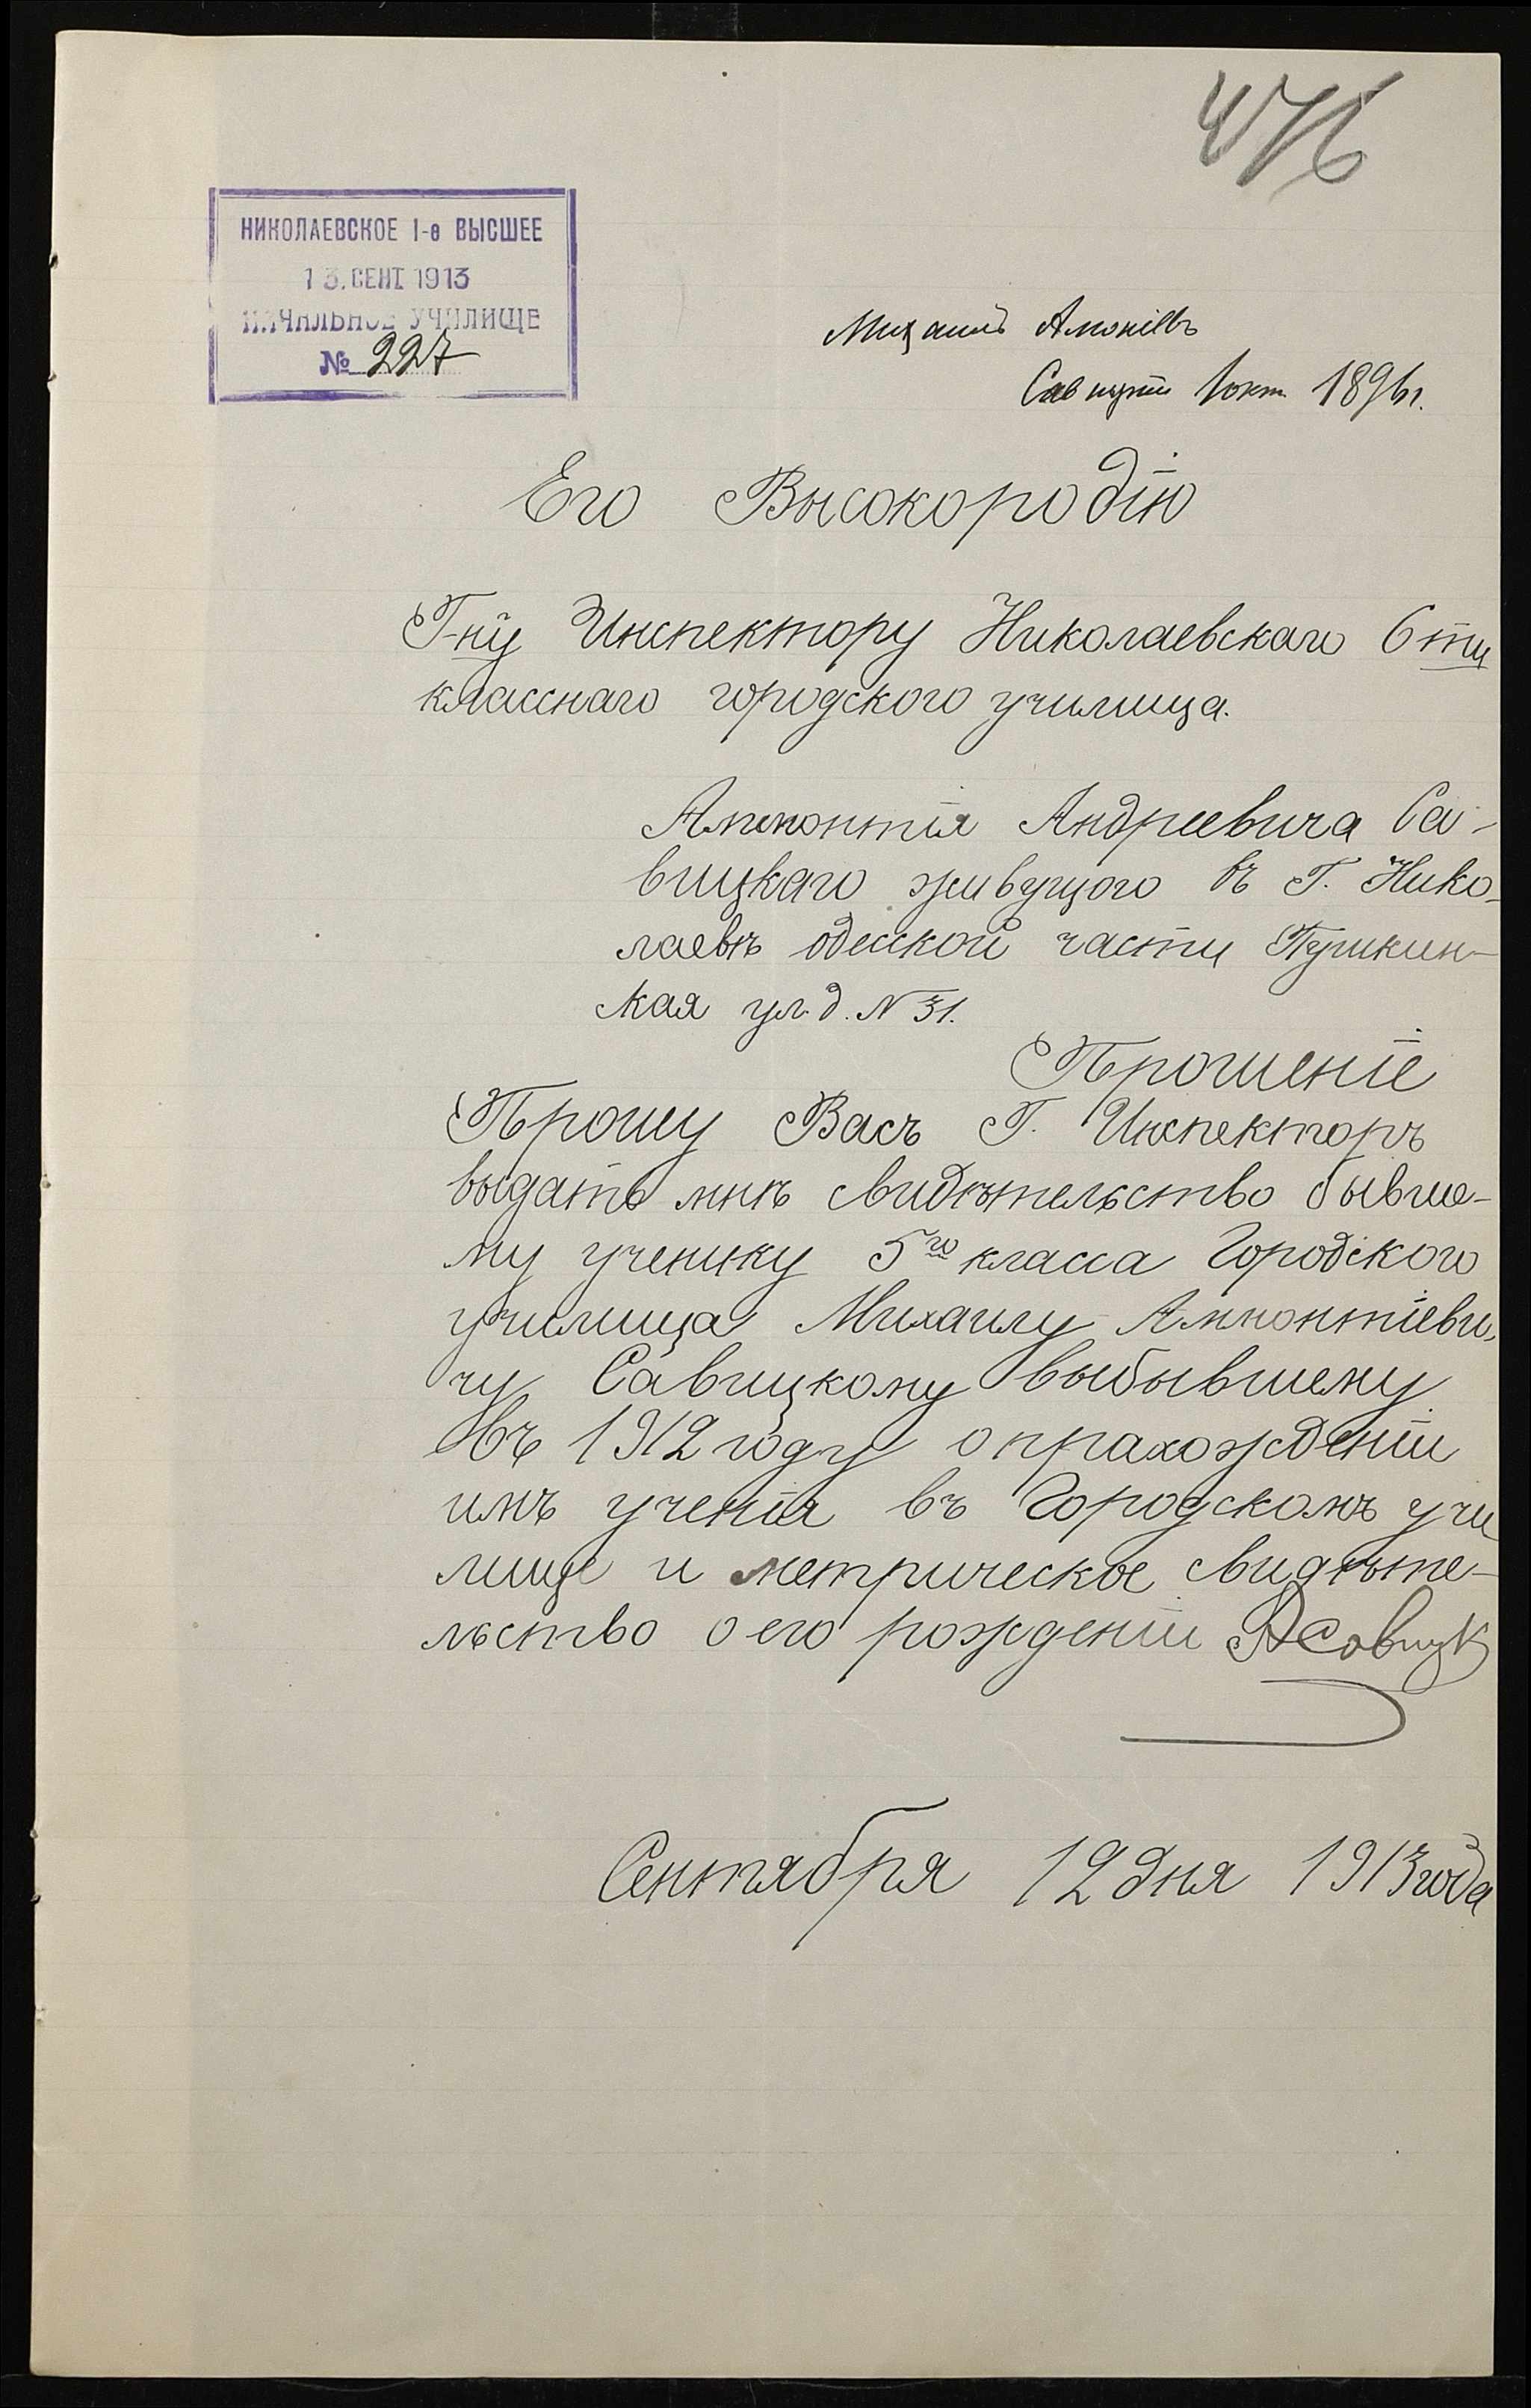 476
НИКОЛАЕВСКОЕ 1-е ВЫСШЕЕ
13. СЕНТ 1913
НАЧАЛЬНОЕ УЧИЛИЩЕ
№ 227
Михаилъ
1 окт. 1896 г.
Его Высокородію
Г-ну Инспектору Николаевскаго 6 ти
класснаго городского училища.
Андреевича Са-
вицкаго живущого въ Г. Нико-
лаевѣ одесской части Пушкин-
ская ул. д. N 31.
Прошеніе
Прошу Васъ Г. Инспекторъ
выдать мнѣ свидѣтельство бывше-
му ученику 5го класса Городского
училища Михаилу Амионтіеви-
чу Савицкому выбывшему
въ 1912 году о прахожденіи
имъ ученія въ Городскомъ учи
лище и метрическое свидѣте-
льство о его рожденіи А Савицк
Сентября 12 дня 1913 года